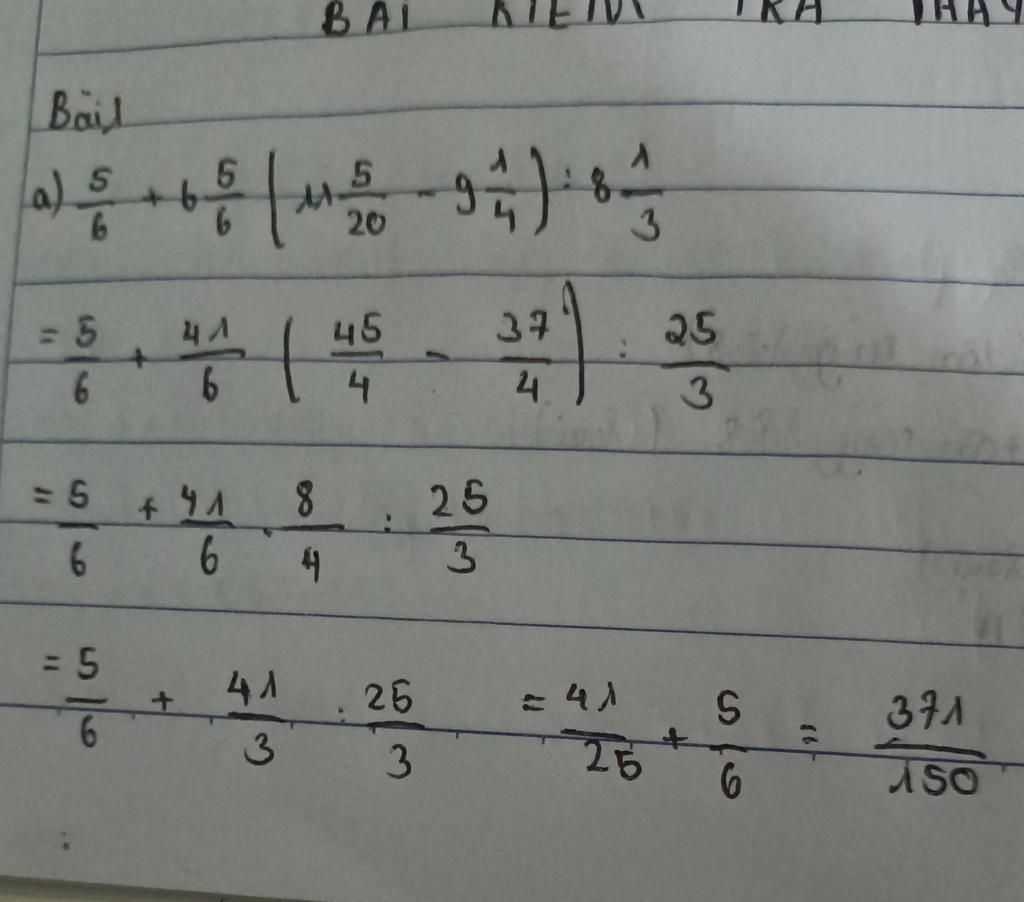 BÀI KIỂM TRA THAY
Bài 1
a) 5/6 + 6 5/6 ( 11 5/20 - 9 1/4 ) : 8 1/3
= 5/6 + 41/6 ( 45/4 - 37/4 ) : 25/3
= 5/6 + 41/6 . 8/4 : 25/3
= 5/6 + 41/3 : 25/3 = 41/25 + 5/6 = 371/150